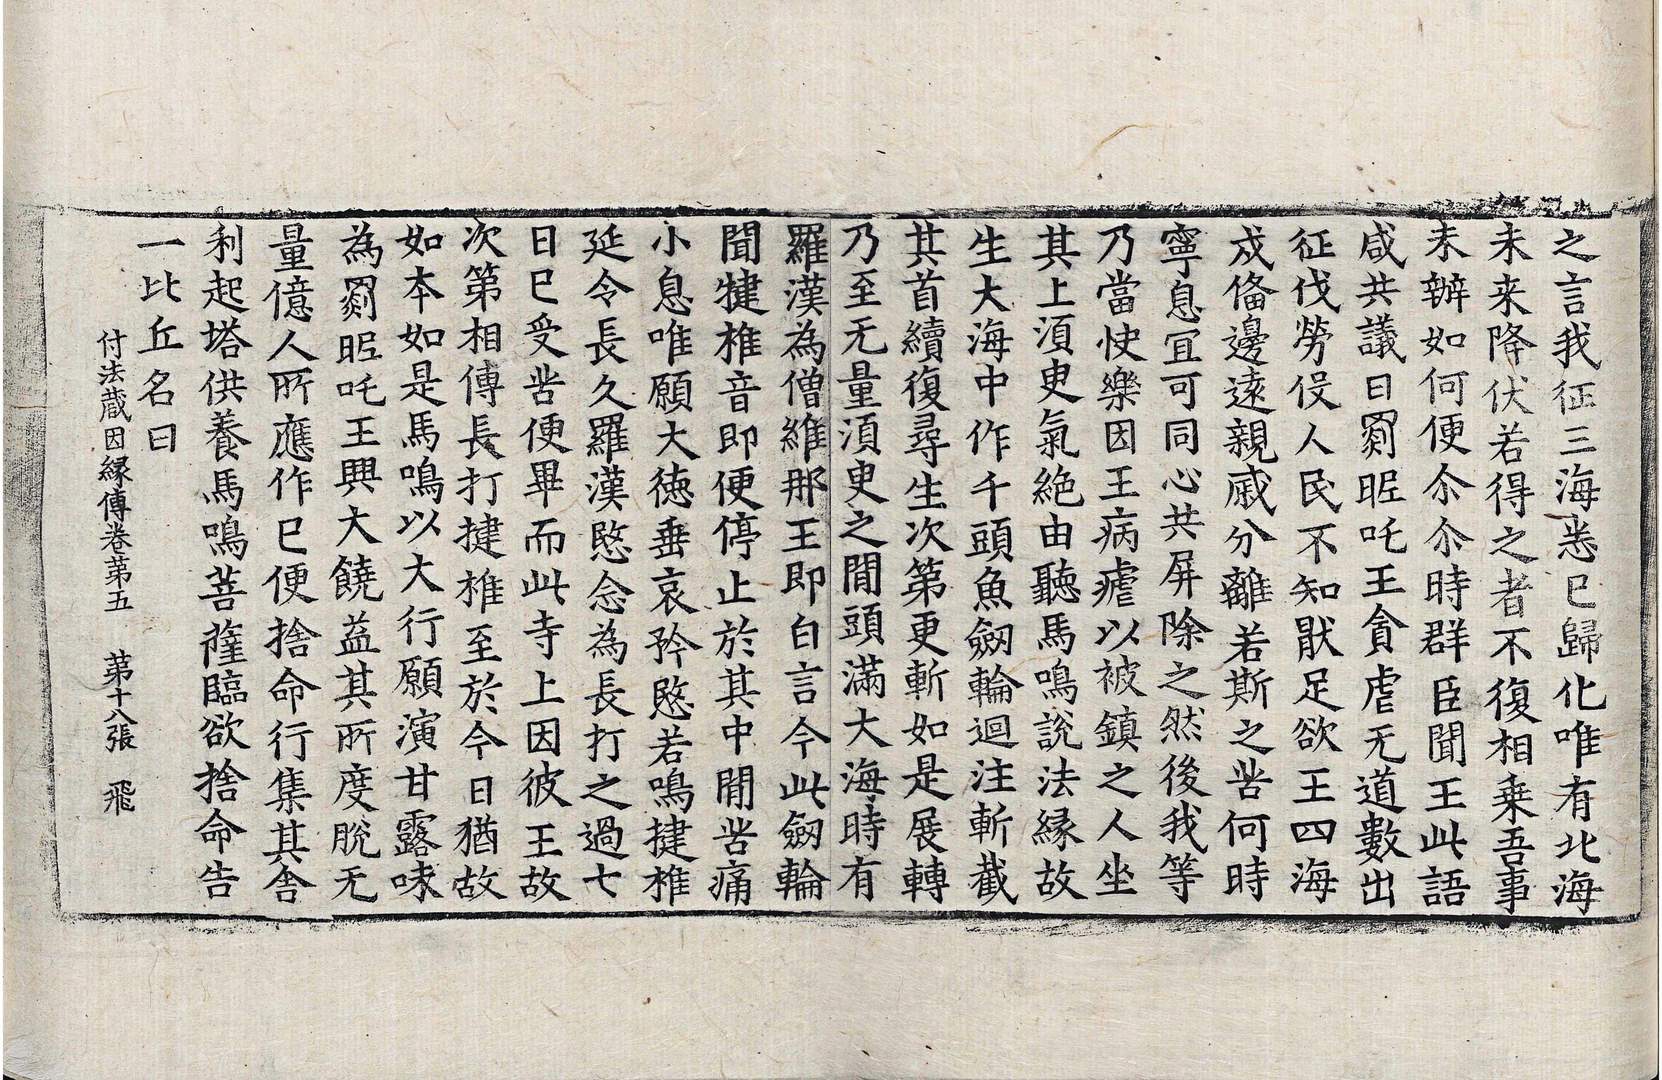 之言我征三海悉已歸化唯有北海
未来降伏若得之者不復相乗吾事
未辦如何便尒尒時群臣聞王此語
咸共議曰罽昵吒王貪虐无道數出
征伐勞役人民不知猒足欲王四海
戍俻邊遠親戚分離若斯之苦何時
寧息冝可同心共屏除之然後我等
乃當快樂因王病瘧以被鎮之人坐
其上湏㬰氣絶由聽馬鳴說法縁故
生大海中作千頭魚劔輪迴注斬截
其首續復尋生次第更斬如是展轉
乃至无量湏㬰之閒頭滿大海時有
羅漢為僧維那王即白言今此劔輪
聞犍椎音即便停止於其中閒苦痛
小息唯願大徳垂哀矜愍若鳴揵椎
延令長久羅漢愍念為長打之過七
日已受苦便畢而此寺上因彼王故
次第相傳長打揵椎至於今日猶故
如本如是馬鳴以大行願演甘露味
為罽昵吒王興大饒益其所度脫无
量億人所應作已便捨命行集其舎
利起塔供養馬鳴菩薩臨欲捨命告
一比丘名曰
付法蔵因縁傳卷苐五　苐十八張　飛